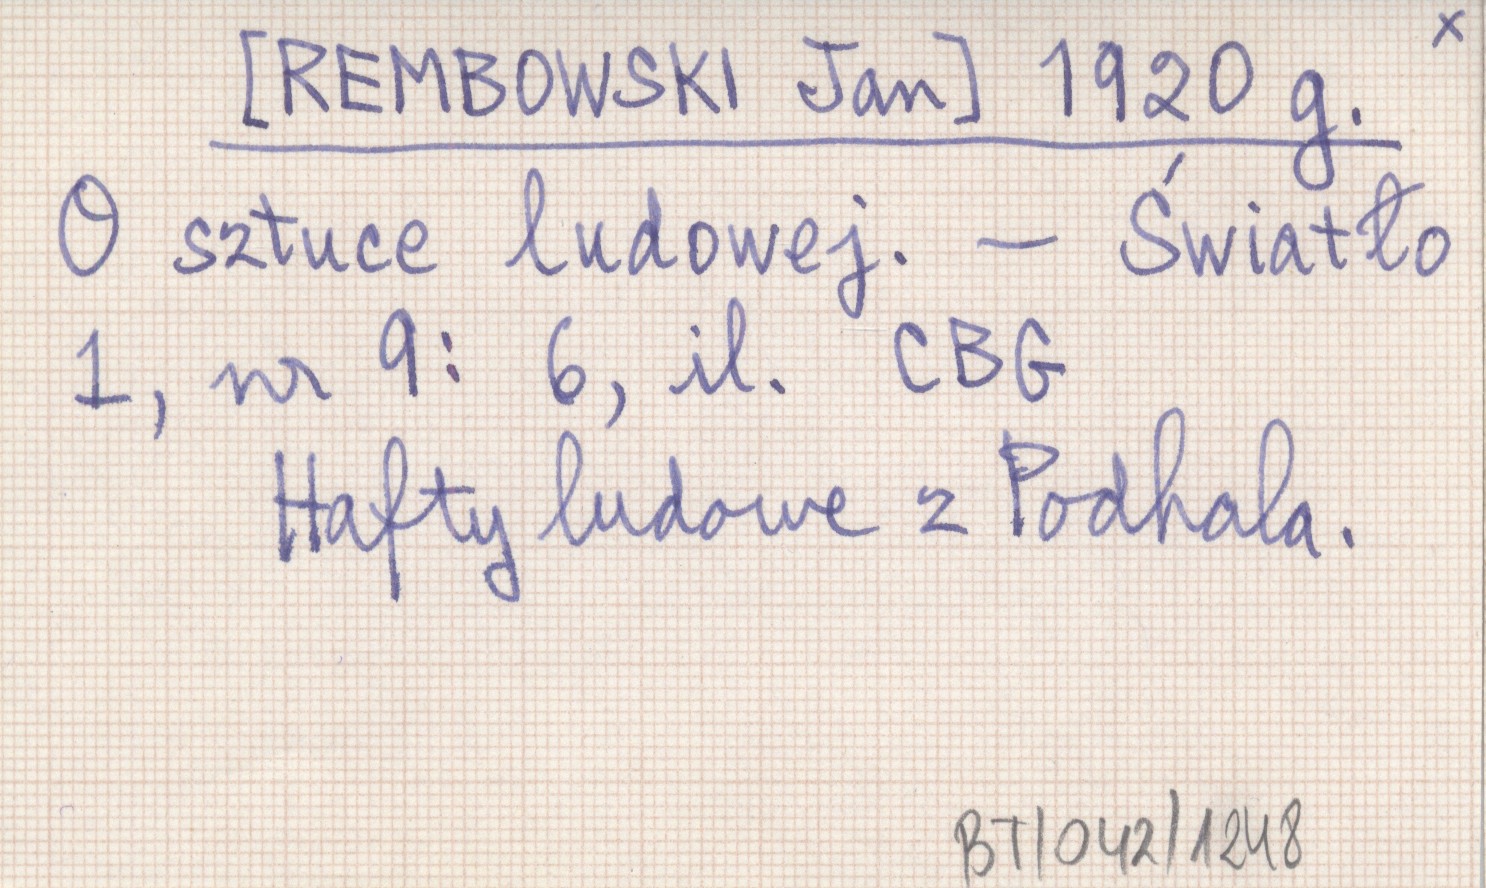 x
[REMBOWSKI Jan] 1920 g.
O sztuce ludowej. — Światło
1, nr 9: 6, il. CBG
Hafty ludowe z Podhala.
BT/042/1248